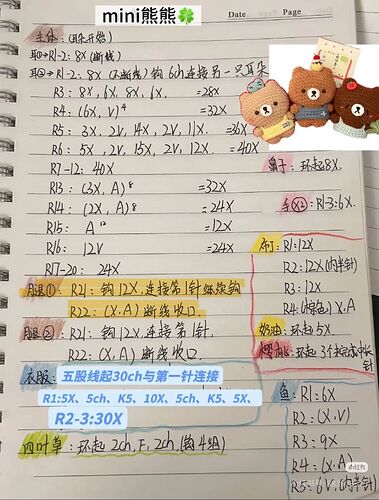 mini熊熊🍀
Date Page
主体：(耳朵开始)
耳①→R1-2：8X(断线)
耳②→R1-2：8X(不断线)钩6ch连接另一只耳朵
R3：8X，6X，8X，6X． =28X
R4：(6X，V)⁴ =32X
R5：3X，2V，14X，2V，11X． =36X
R6：5X，2V，15X，2V，12X． =40X
R7-12：40X
R13：(3X，A)⁸ =32X
R14：(2X，A)⁸ =24X
R15：A¹² =12X
R16：12V =24X
R17-20：24X
腿①：R21：钩12X，连接第1针继续钩
R22：(X．A)断线收口．
腿②：R21：钩12X，连接第1针．
(X．A)断线收口．
衣服：五股线起30ch与第一针连接
R1:5X、5ch、K5、10X、5ch、K5、5X、
R2-3:30X
四叶草：环起2ch，F，2ch．(钩4组)
鼻子：环起8X．
手(X2)：R1-3：6X．
R1：12X
R2：12X(内半针)
R3：12X
R4：(棕色)X．A
奶油：环起5X．
鱼：R1：6X
R2：(X．V)
R3：9X
R4：(X．A)
R5：6V．(内半针)
小红书